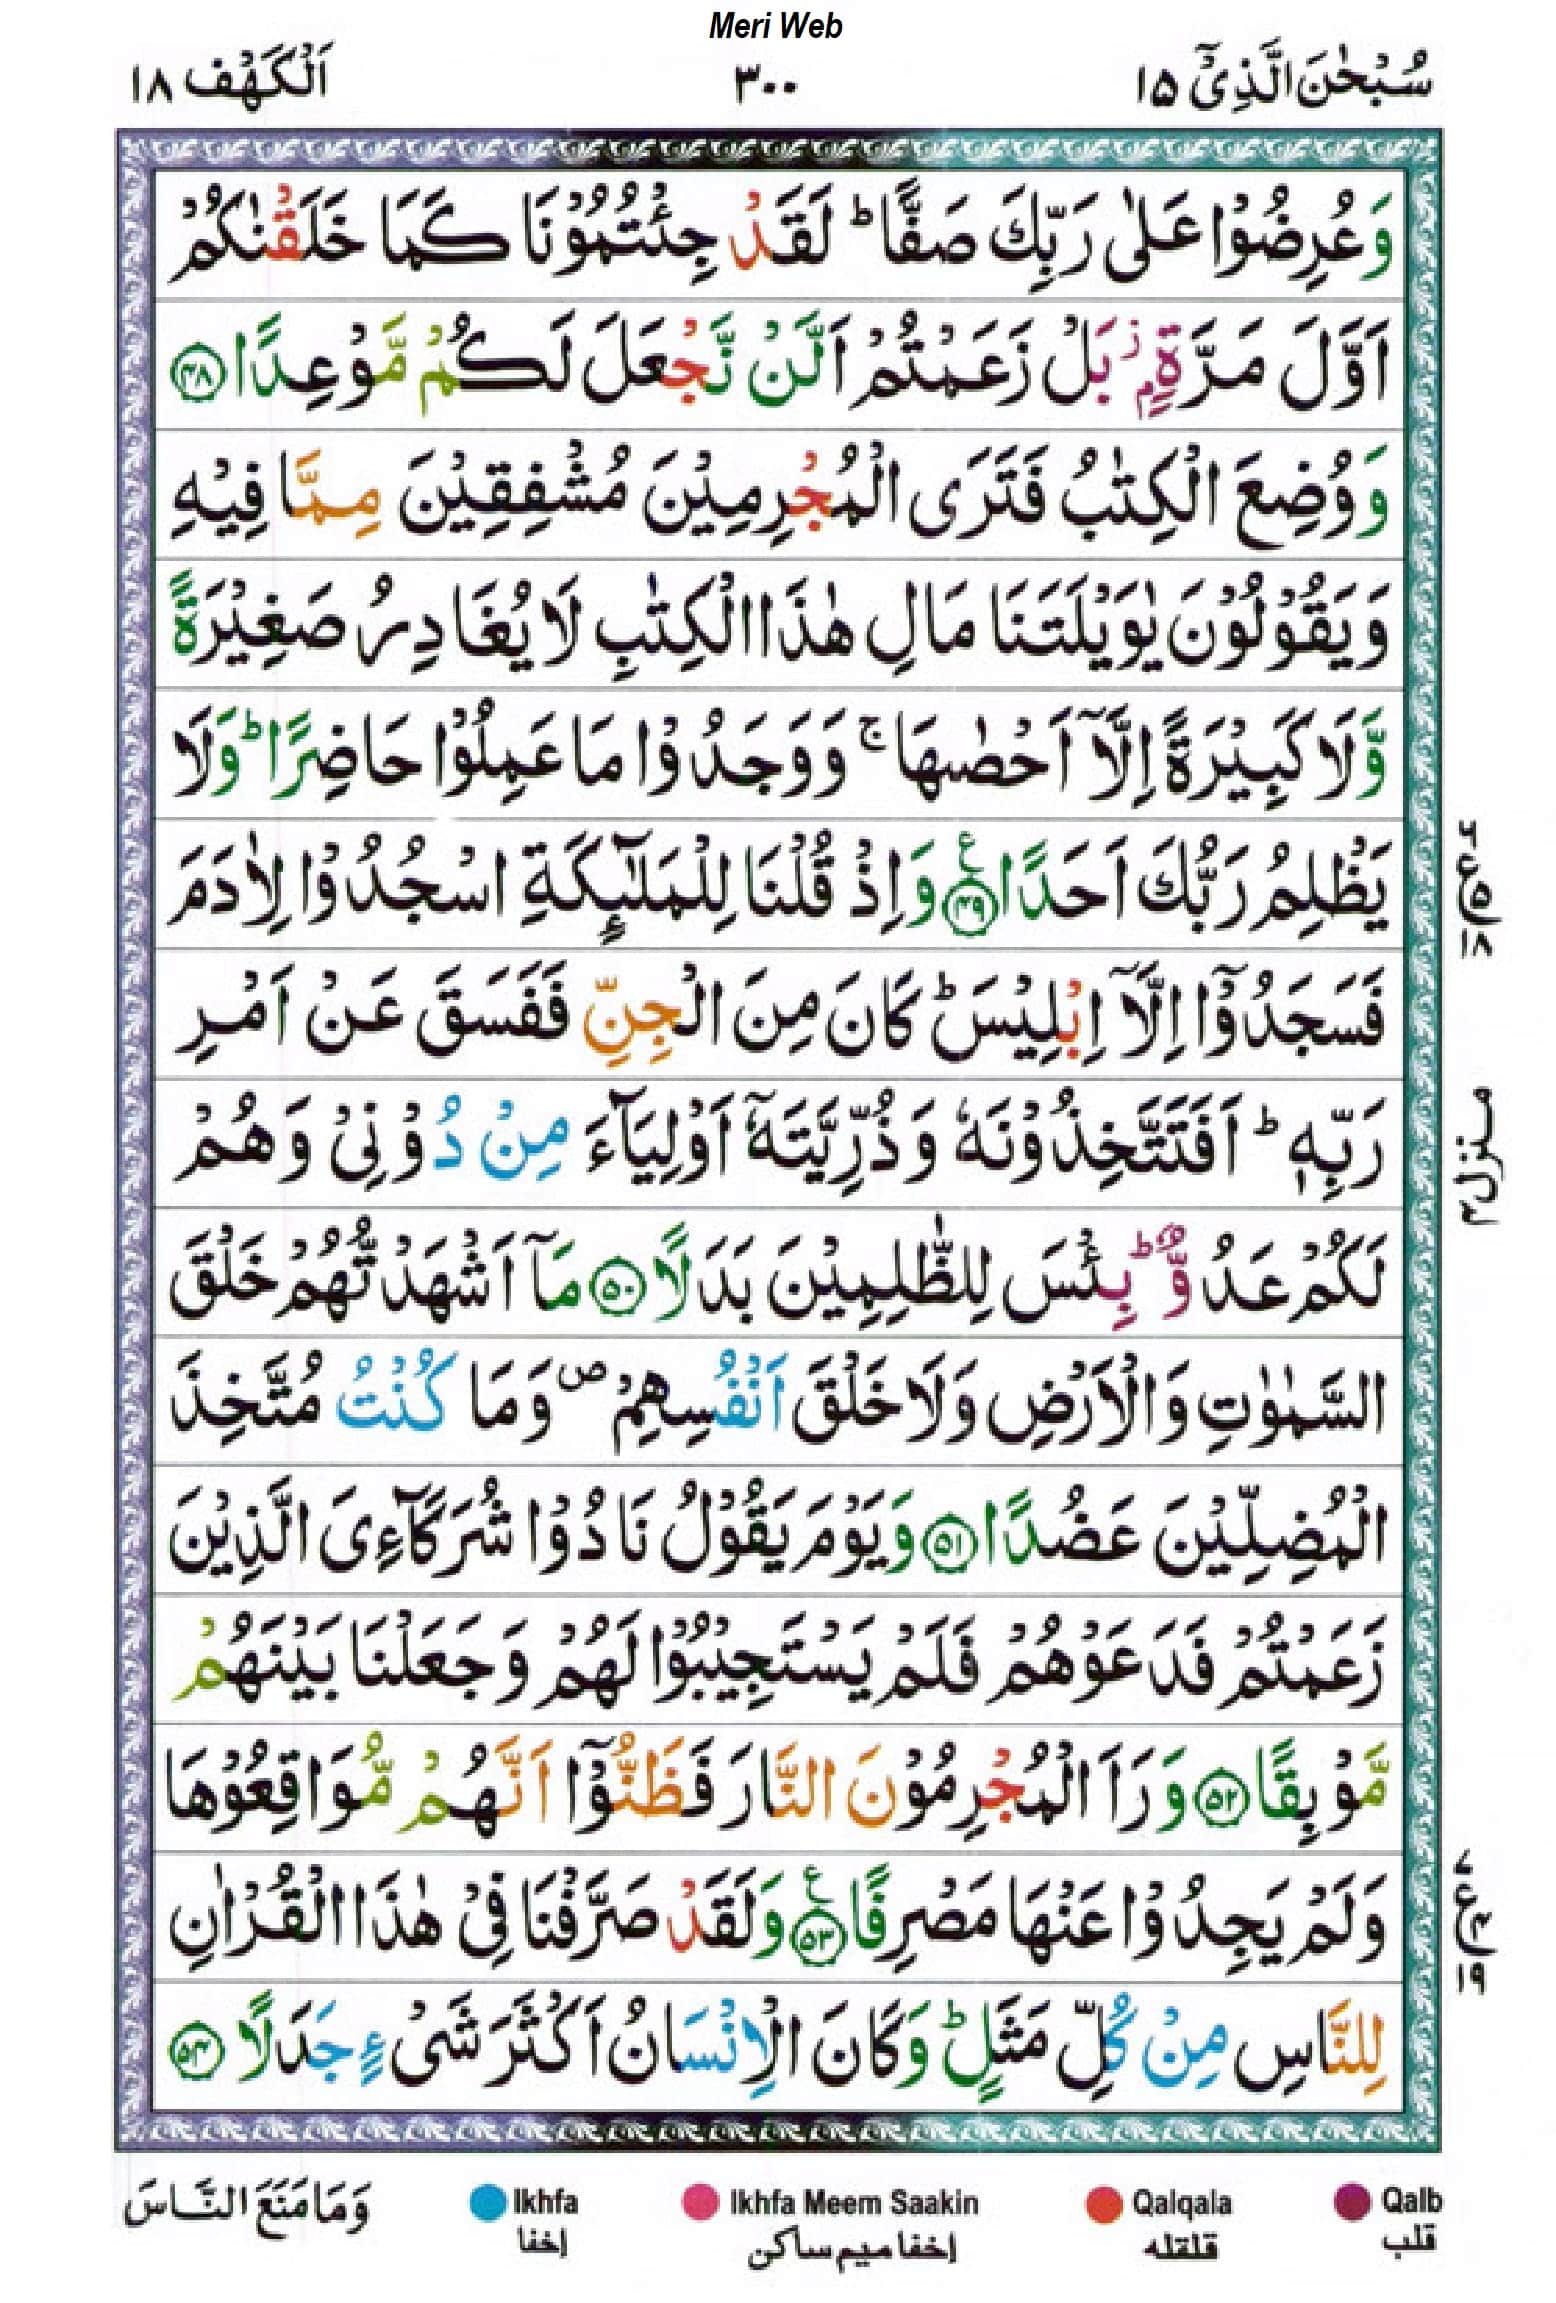 Meri Web
سُبْحٰنَ الَّذِیْۤ ١٥ ٣٠٠ اَلْكَهْف ١٨
وَعُرِضُوْا عَلٰی رَبِّكَ صَفًّا ؕ لَقَدْ جِئْتُمُوْنَا كَمَا خَلَقْنٰكُمْ
اَوَّلَ مَرَّةٍۭ ؗ بَلْ زَعَمْتُمْ اَلَّنْ نَّجْعَلَ لَكُمْ مَّوْعِدًا ﴿۴۸﴾
وَوُضِعَ الْكِتٰبُ فَتَرَی الْمُجْرِمِیْنَ مُشْفِقِیْنَ مِمَّا فِیْهِ
وَیَقُوْلُوْنَ یٰوَیْلَتَنَا مَالِ هٰذَا الْكِتٰبِ لَا یُغَادِرُ صَغِیْرَةً
وَّلَا كَبِیْرَةً اِلَّاۤ اَحْصٰىهَا ۚ وَوَجَدُوْا مَا عَمِلُوْا حَاضِرًا ؕ وَلَا
یَظْلِمُ رَبُّكَ اَحَدًا ﴿۴۹﴾ ع وَاِذْ قُلْنَا لِلْمَلٰٓىِٕكَةِ اسْجُدُوْا لِاٰدَمَ
فَسَجَدُوْۤا اِلَّاۤ اِبْلِیْسَ ؕ كَانَ مِنَ الْجِنِّ فَفَسَقَ عَنْ اَمْرِ
رَبِّهٖ ؕ اَفَتَتَّخِذُوْنَهٗ وَذُرِّیَّتَهٗۤ اَوْلِیَآءَ مِنْ دُوْنِیْ وَهُمْ
لَكُمْ عَدُوٌّ ؕ بِئْسَ لِلظّٰلِمِیْنَ بَدَلًا ﴿۵۰﴾ مَاۤ اَشْهَدْتُّهُمْ خَلْقَ
السَّمٰوٰتِ وَالْاَرْضِ وَلَا خَلْقَ اَنْفُسِهِمْ ۪ وَمَا كُنْتُ مُتَّخِذَ
الْمُضِلِّیْنَ عَضُدًا ﴿۵۱﴾ وَیَوْمَ یَقُوْلُ نَادُوْا شُرَكَآءِیَ الَّذِیْنَ
زَعَمْتُمْ فَدَعَوْهُمْ فَلَمْ یَسْتَجِیْبُوْا لَهُمْ وَجَعَلْنَا بَیْنَهُمْ
مَّوْبِقًا ﴿۵۲﴾ وَرَاَ الْمُجْرِمُوْنَ النَّارَ فَظَنُّوْۤا اَنَّهُمْ مُّوَاقِعُوْهَا
وَلَمْ یَجِدُوْا عَنْهَا مَصْرِفًا ﴿۵۳﴾ ع وَلَقَدْ صَرَّفْنَا فِیْ هٰذَا الْقُرْاٰنِ
لِلنَّاسِ مِنْ كُلِّ مَثَلٍ ؕ وَكَانَ الْاِنْسَانُ اَكْثَرَ شَیْءٍ جَدَلًا ﴿۵۴﴾
منزل ۴
وَمَا مَنَعَ النَّاسَ Ikhfa Ikhfa Meem Saakin Qalqala Qalb
إخفا إخفا ميم ساكن قلقله قلب